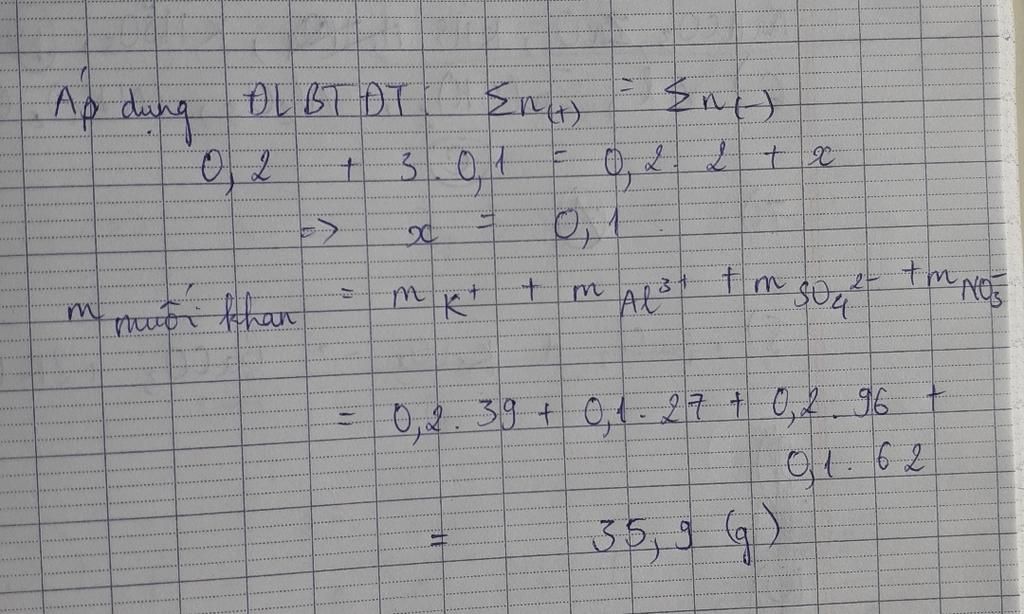 Áp dụng ĐLBTĐT: Σn(+) = Σn(-)
0,2 + 3.0,1 = 0,2.2 + x
=> x = 0,1
m muối khan = m K⁺ + m Al³⁺ + m SO₄²⁻ + m NO₃⁻
= 0,2.39 + 0,1.27 + 0,2.96 +
0,1.62
= 35,9 (g)